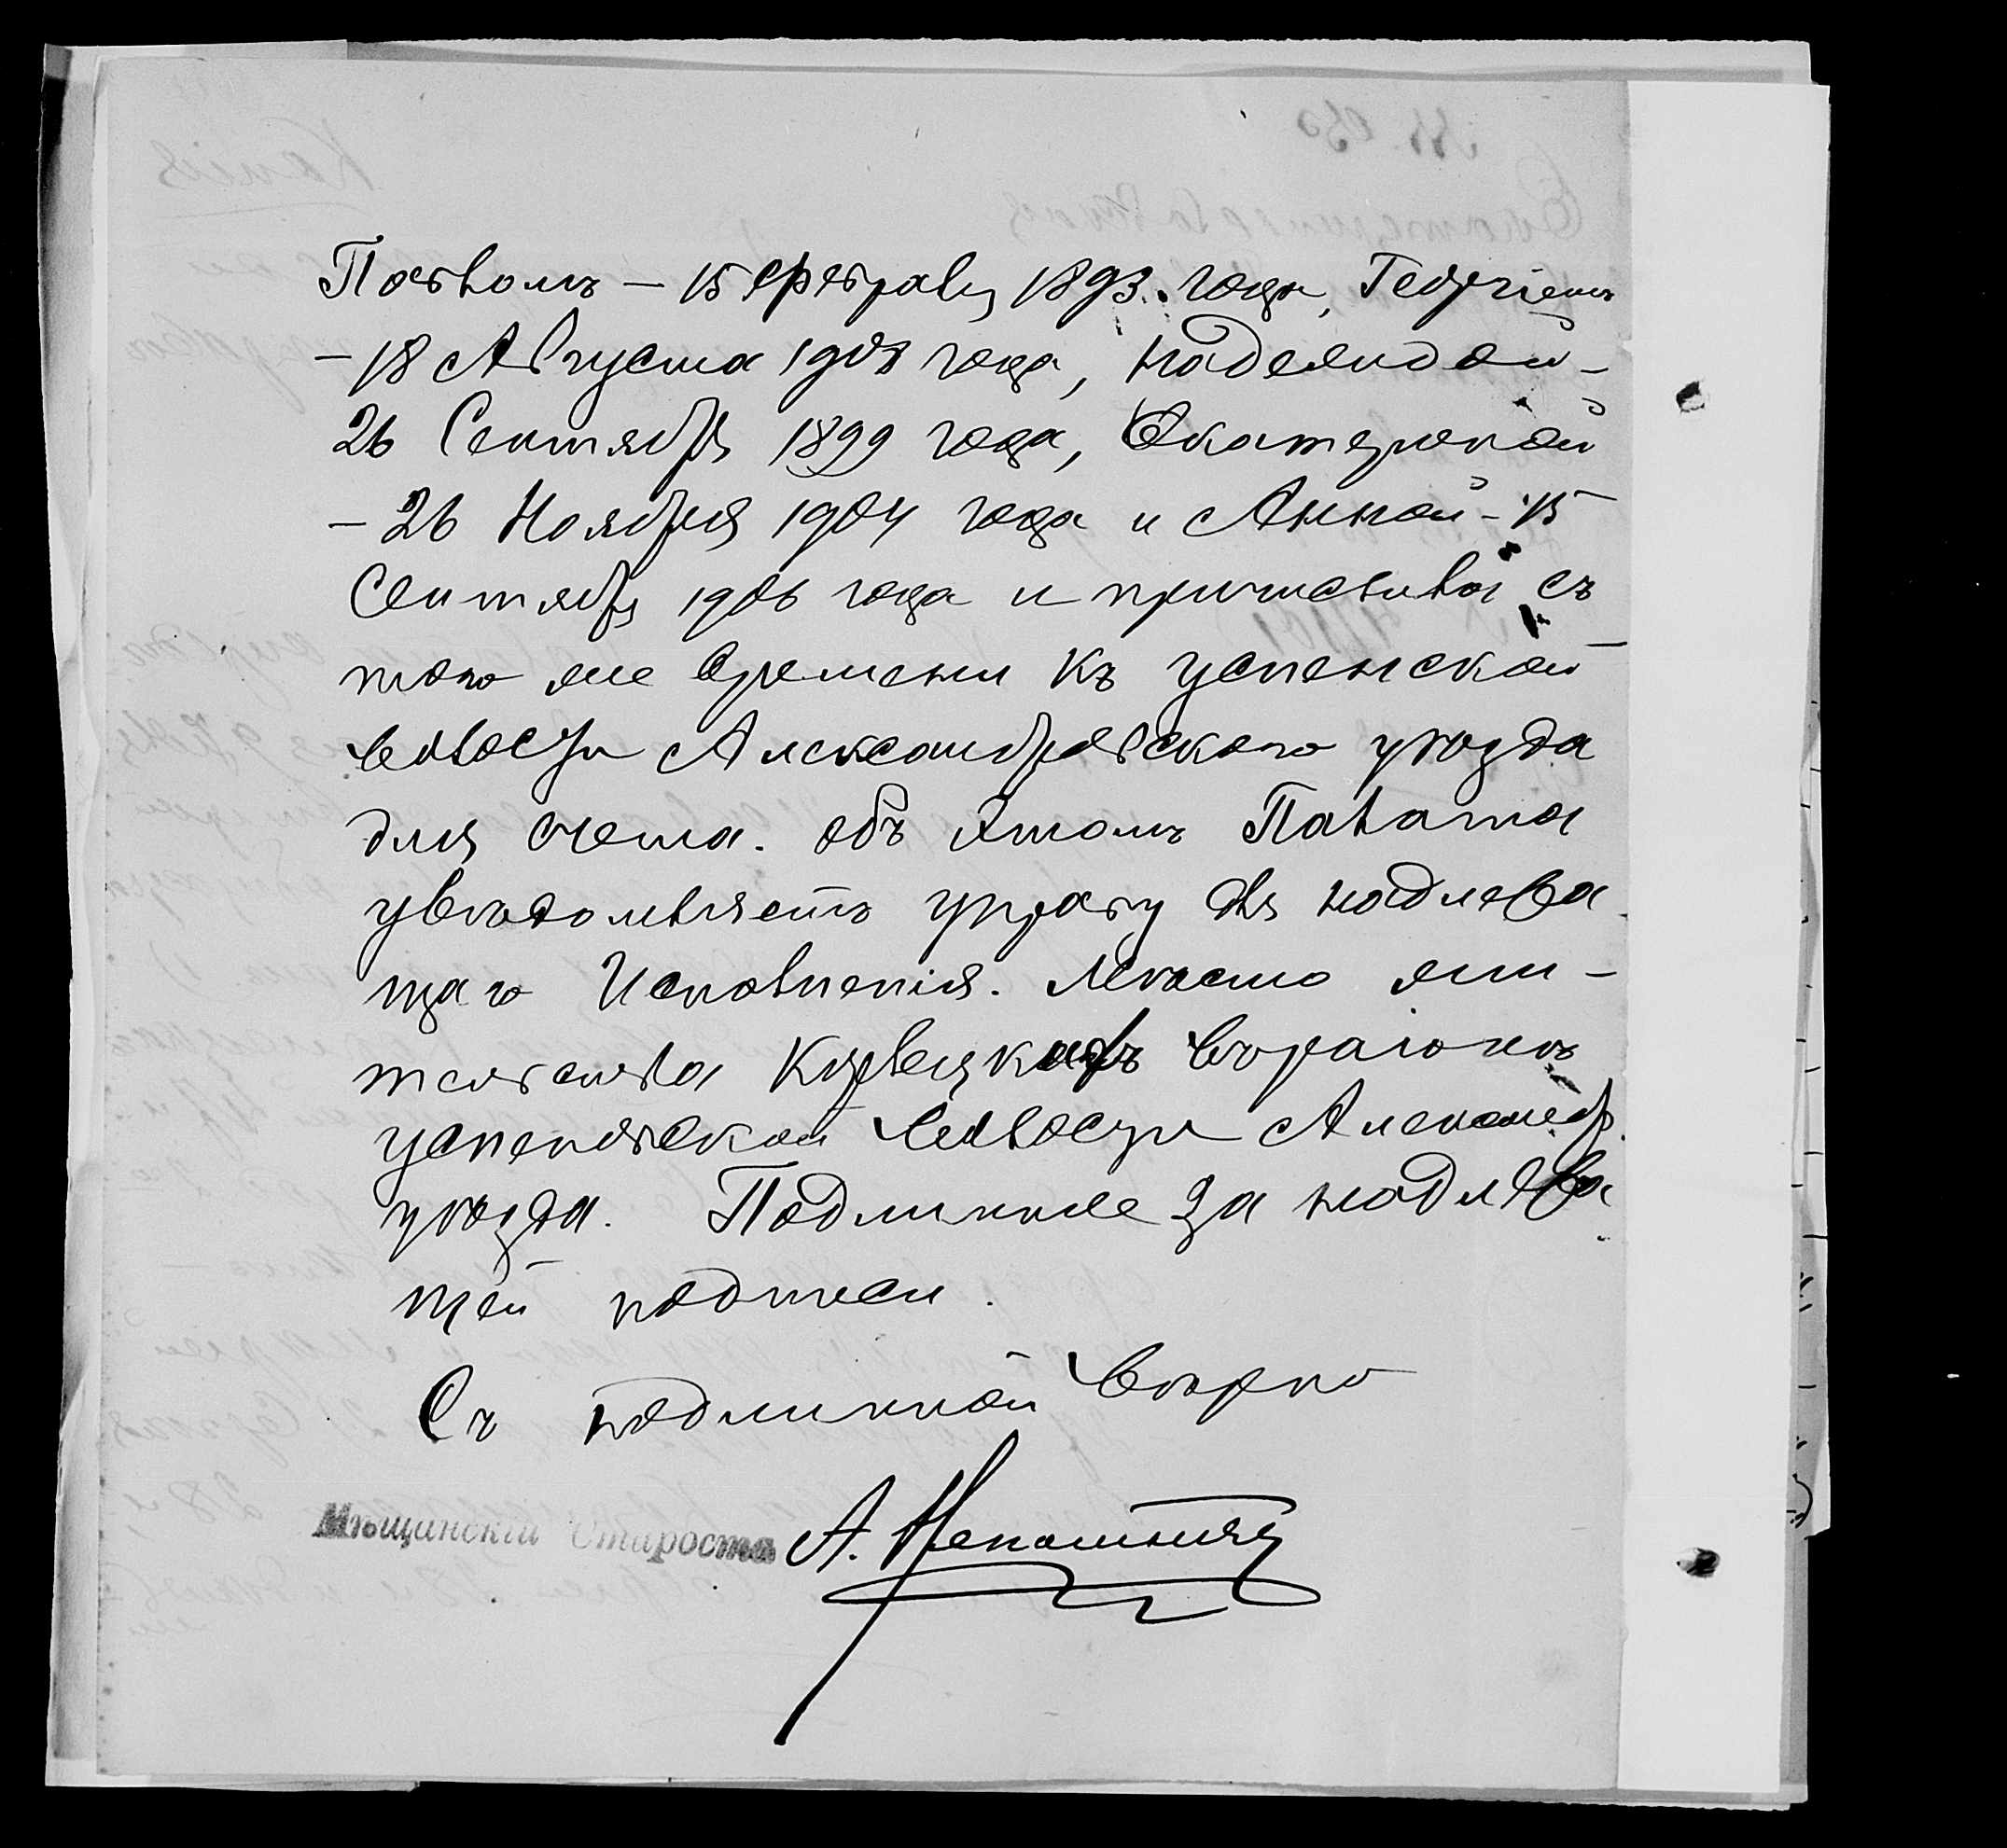 Павломъ — 15 Февраля 1893. года, Георгіемъ
— 18 Августа 1908 года, Надеждой —
26 Сентября 1899 года, Екатериной
— 26 Ноября 1904 года и Анной — 15
Сентября 1906 года и причислила съ
того же времени къ Успенской
волости Александровскаго уѣзда
для счета. Объ этомъ Палата
увѣдомляетъ управу для надлежа
щаго Исполненія. Мѣсто жи-
тельства въ раіонѣ
Успеновской волости Александр.
уѣзда. Подлинное за надлежа
щей подписи.
Съ подлинной вѣрно
Мѣщанскій Староста А.